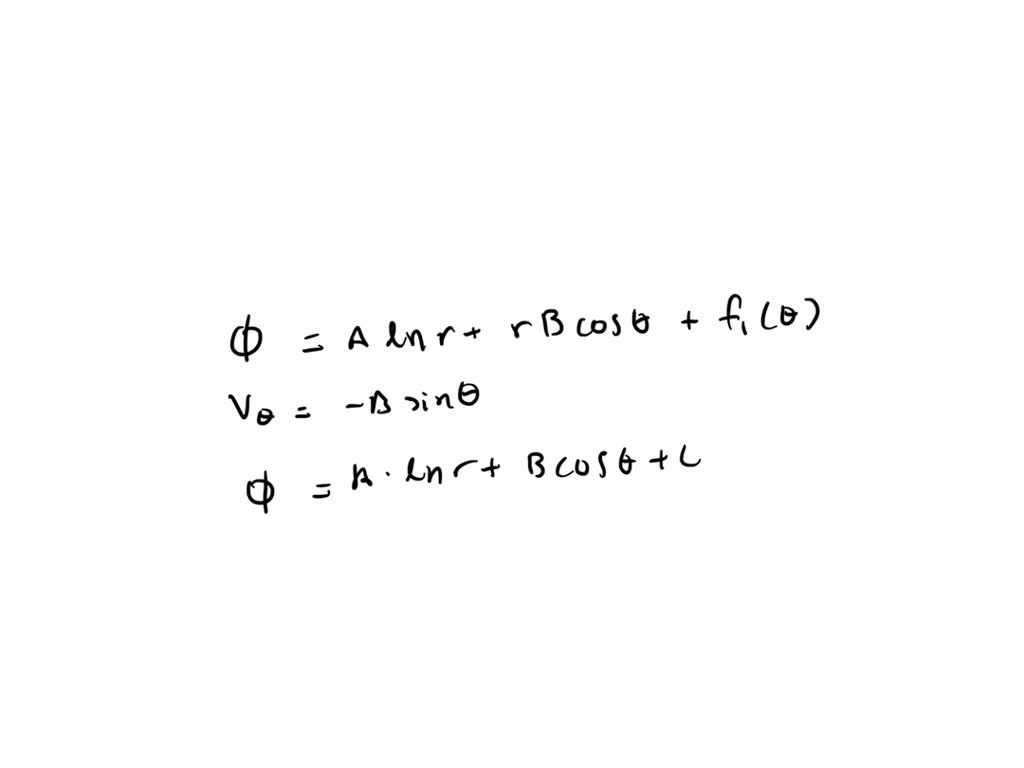 ϕ = A ln r + r B cosθ + f₁(θ)
Vθ = -B sinθ
ϕ = A · ln r + B cosθ + C